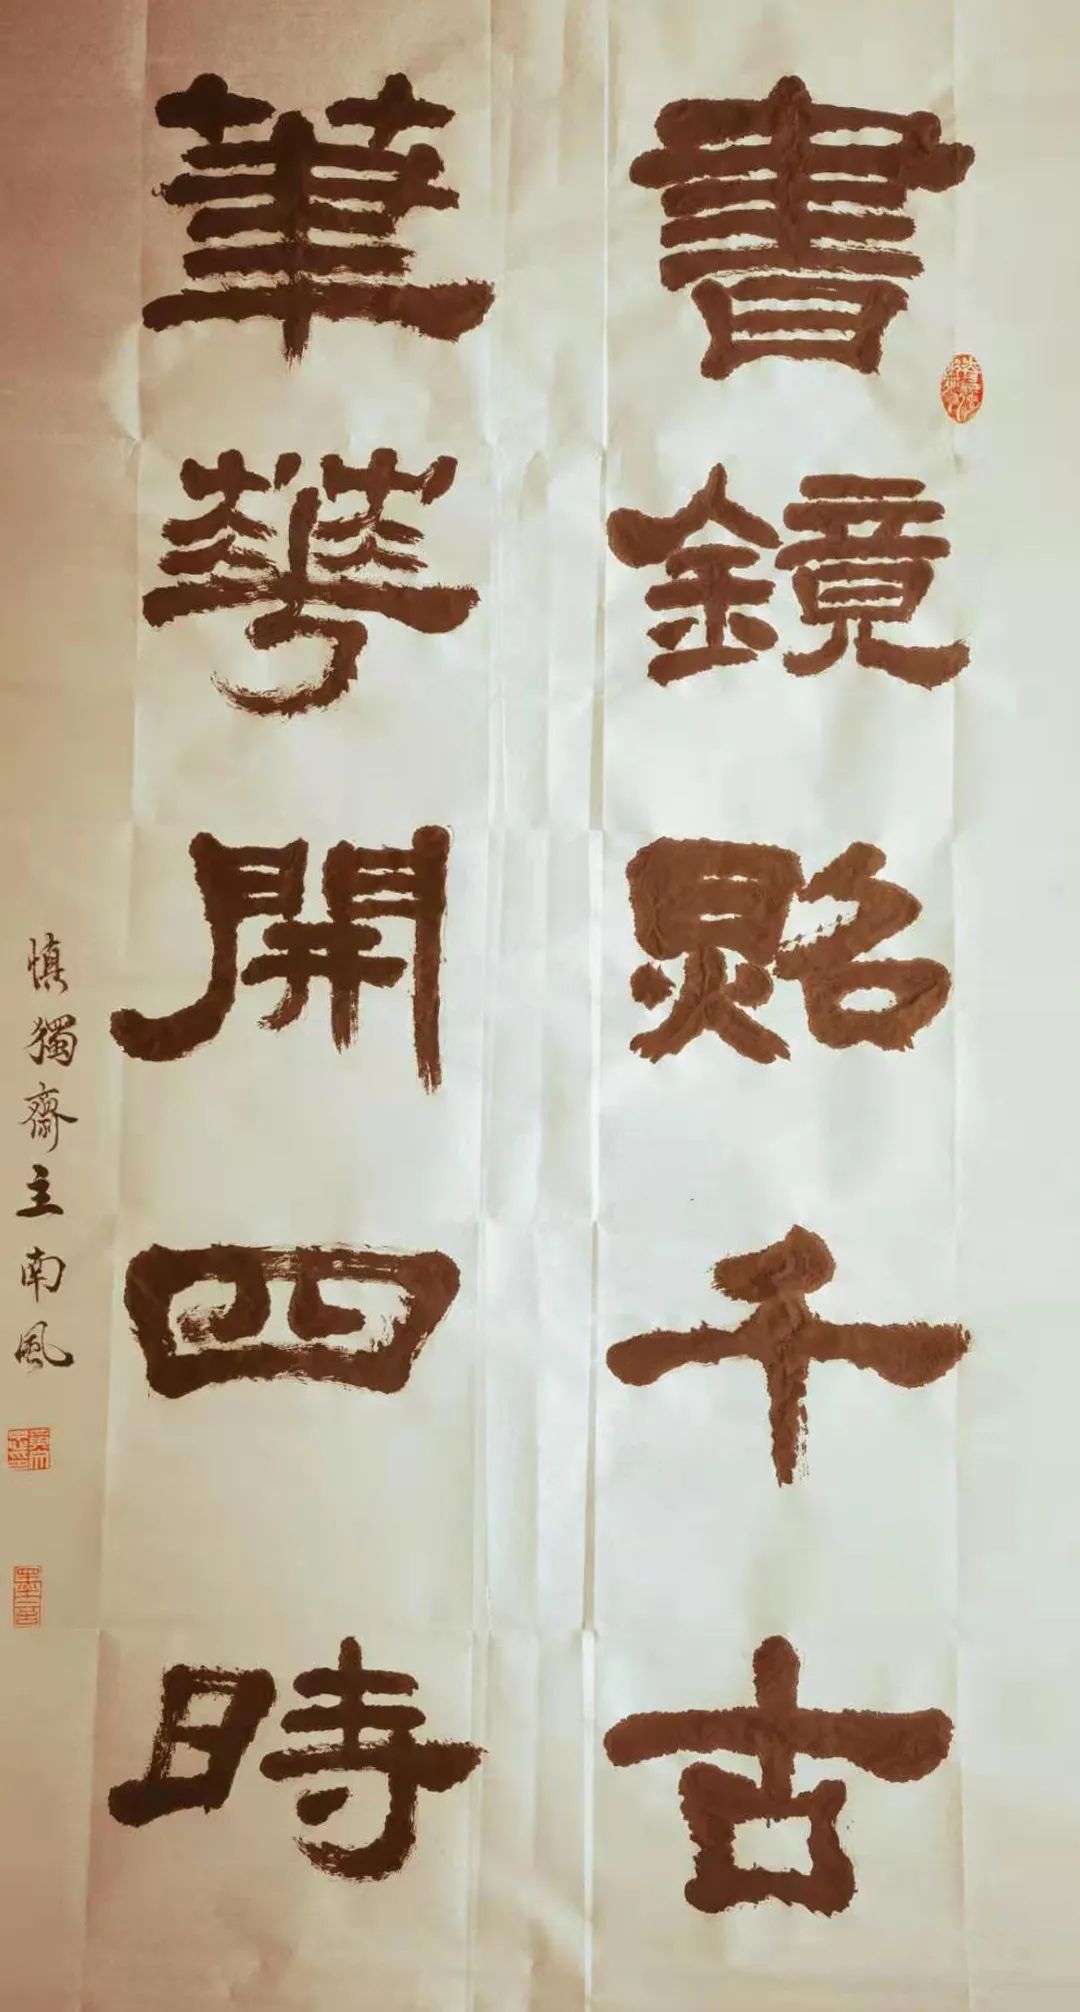 書鏡照千古
筆華開四時
慎獨齋主南風